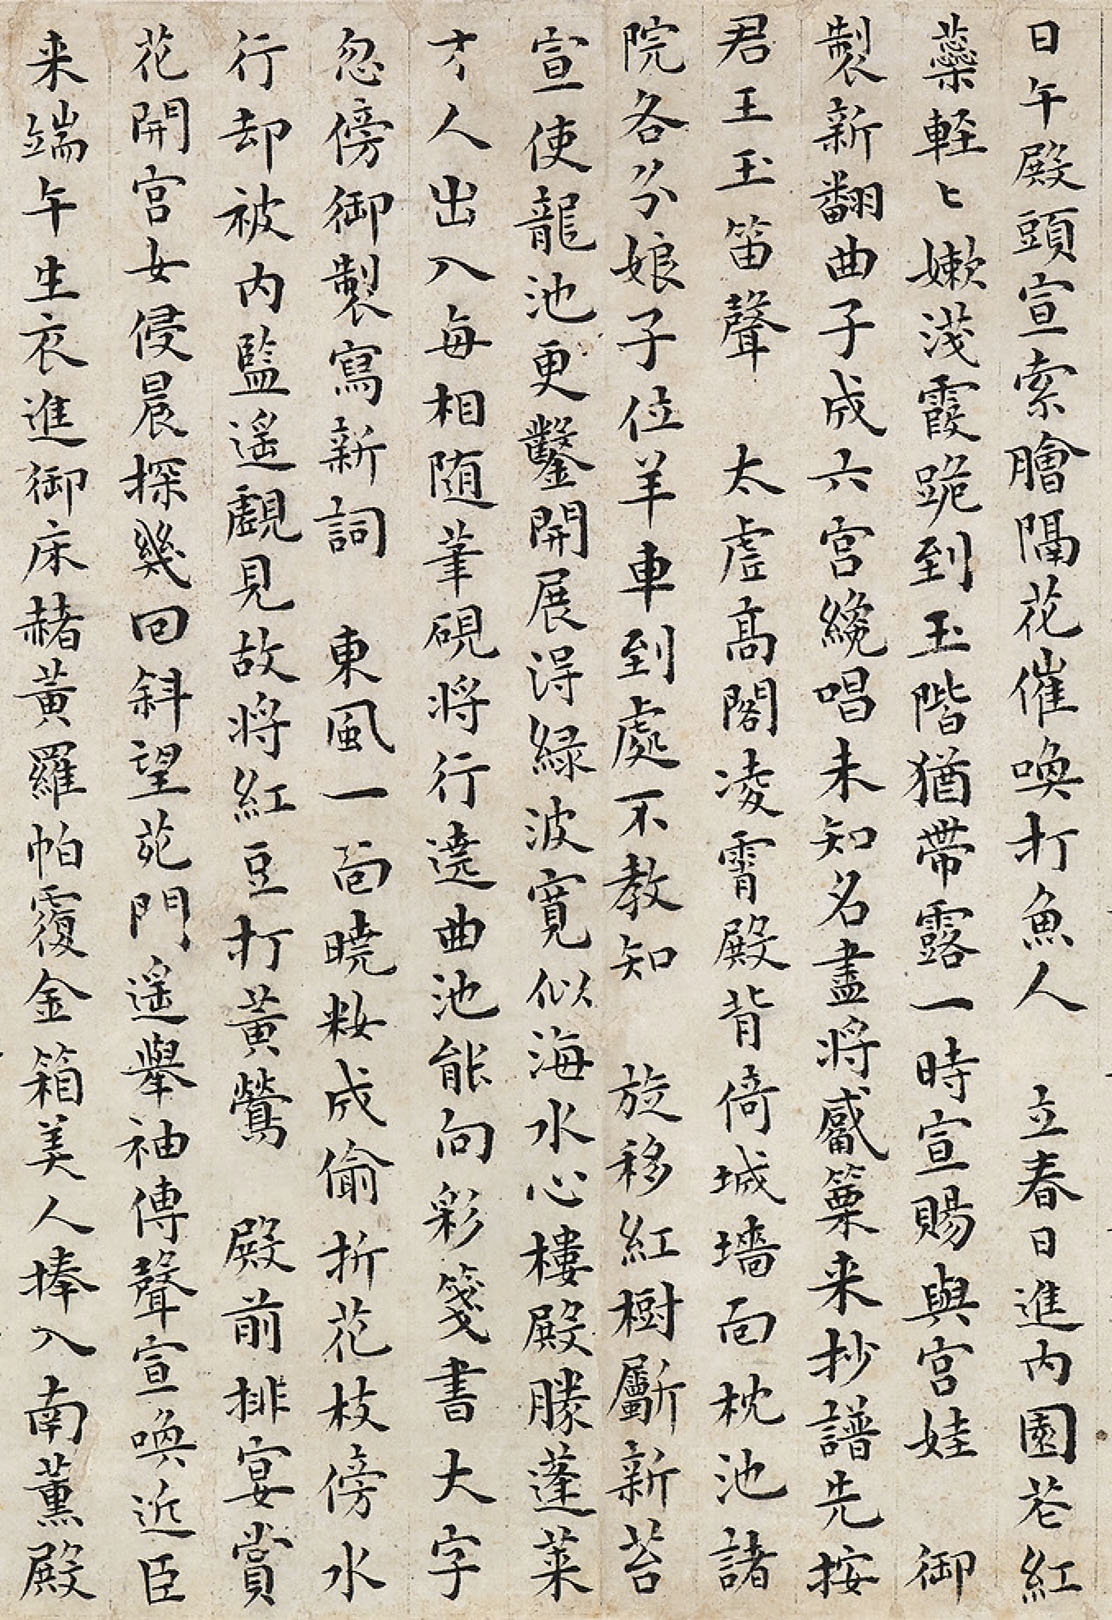 日午殿頭宣索膾隔花催喚打魚人　立春日進内園花紅
蘂軽〻嫩淺霞跪到玉階猶帶露一時宣賜與宮娃　御
製新翻曲子成六宮纔唱未知名盡將觱篥来抄譜先按
君王玉笛聲　太虛高閣凌霄殿背倚城墻面枕池諸
院各分娘子位羊車到處不教知　旋移紅樹斸新苔
宣使龍池更鑿開展得緑波寛似海水心樓殿勝蓬莱
才人出入毎相随筆硯將行遶曲池能向彩箋書大字
忽傍御製寫新詞　東風一面曉粧成偷折花枝傍水
行却被内監遥覷見故將紅豆打黃鶯　殿前排宴賞
花開宮女侵晨探幾回斜望苑門遥舉袖傳聲宣喚近臣
来端午生衣進御床赭黃羅帕覆金箱美人捧入南薰殿